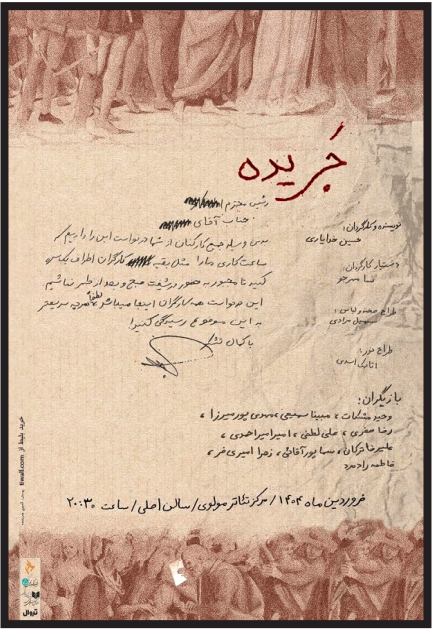 جَریده
رئیس محترم
جناب آقای
بدین وسیله جمیع کارکنان از شما درخواست این را داریم که
ساعت کاری ما را مثل بقیه کارگران اطراف یکسان
کنید تا مجبور به حضور در شیفت صبح و بعد از ظهر نباشیم
این درخواست همه کارگران اینجا میباشد لطفاً هرچه سریعتر
به این موضوع رسیدگی کنید
با کمال تشکر
نویسنده و کارگردان:
حسین خدایاری
دستیار کارگردان:
طراح صحنه و لباس:
سهیل مرادی
طراح نور:
اتابک اسدی
بازیگران:
وحید مشکات، مبینا سمیعی، مهدی پورمیرزا،
رضا صفری، علی لطفی، امیر امیراحمدی،
علیرضا ترکان، سما پورآقائی، زهرا امیری فر،
فاطمه رادمرد
فروردین ماه ۱۴۰۴/ مرکز تئاتر مولوی/ سالن اصلی/ ساعت ۲۰:۳۰
خرید بلیط از tiwall.com
تیوال